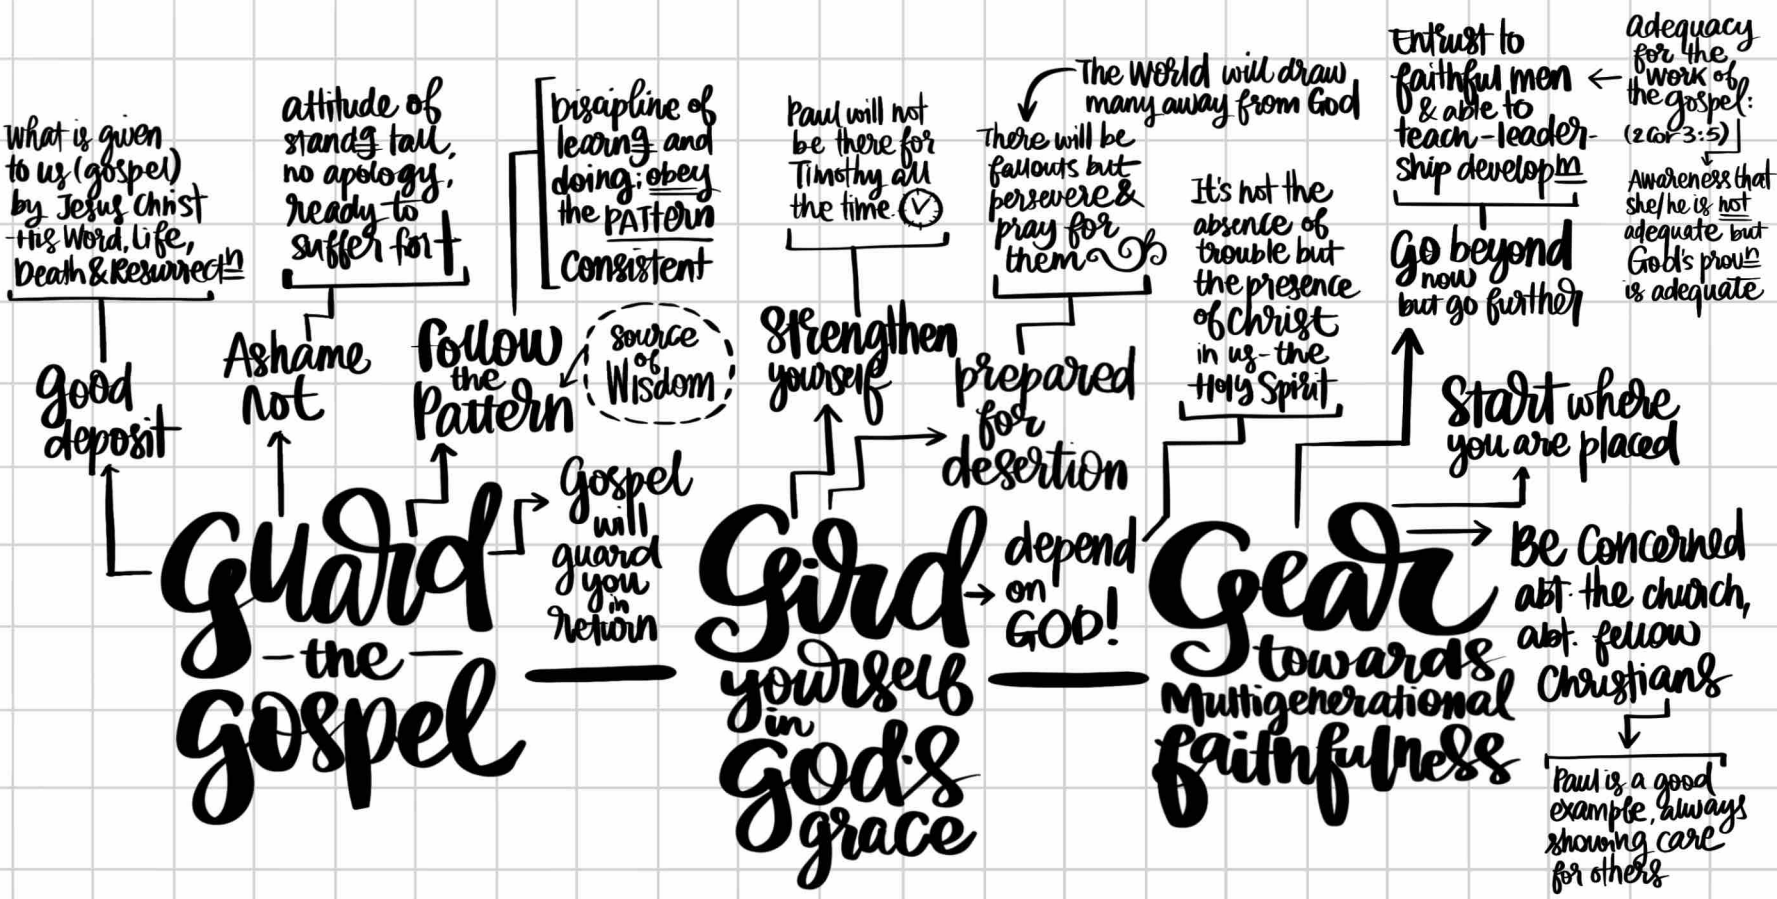 What is given
to us (gospel)
by Jesus Christ
-His Word, Life,
Death & Resurrectn
good
deposit
attitude of
standg tall,
no apology,
ready to
suffer for t
Ashame
not
Discipline of
learng and
doing; obey
the PATTERN
consistent
follow
the
Pattern
source
of
Wisdom
Gospel
will
guard
you
in
return
Guard
-the-
gospel
Paul will not
be there for
Timothy all
the time.
Strengthen
yourself
The world will draw
many away from God
There will be
fallouts but
persevere &
pray for
them
prepared
for
desertion
It's not the
absence of
trouble but
the presence
of Christ
in us - the
Holy Spirit
depend
on
GOD!
Gird
yourself
in
god's
grace
Entrust to
faithful men
& able to
teach - leader-
ship developm
adequacy
for the
work of
the gospel:
(2 Cor 3:5)
Awareness that
she/he is not
adequate but
God's provn
is adequate
Go beyond
now
but go further
Start where
you are placed
Be Concerned
abt. the church,
abt. fellow
Christians
Paul is a good
example, always
showing care
for others
Gear
towards
Multigenerational
faithfulness